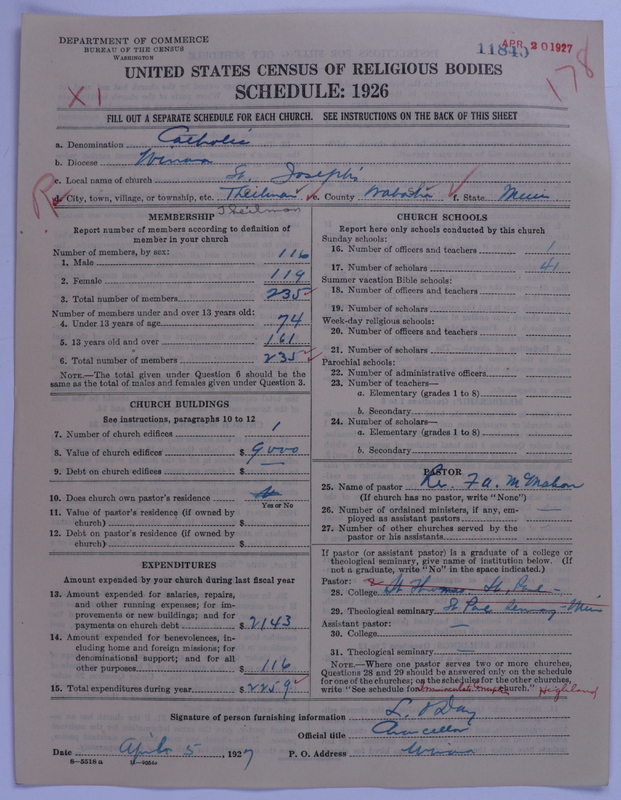 DEPARTMENT OF COMMERCE
BUREAU OF THE CENSUS
WASHINGTON
11845 APR 20 1927
178
UNITED STATES CENSUS OF RELIGIOUS BODIES
X 1
SCHEDULE: 1926
FILL OUT A SEPARATE SCHEDULE FOR EACH CHURCH. SEE INSTRUCTIONS ON THE BACK OF THIS SHEET
a. Denomination Catholic
b. Diocese Winona
c. Local name of church St. Joseph's
d. City, town, village, or township, etc. Theilman e. County Wabasha f. State Minn
Theilman
MEMBERSHIP
Report number of members according to definition of
member in your church
Number of members, by sex:
1. Male 116
2. Female 119
3. Total number of members 235
Number of members under and over 13 years old:
4. Under 13 years of age 74
5. 13 years old and over 161
6. Total number of members 235
NOTE.—The total given under Question 6 should be
the same as the total of males and females given under Question 3.
CHURCH BUILDINGS
See instructions, paragraphs 10 to 12
7. Number of church edifices 1
8. Value of church edifices $ 9000
9. Debt on church edifices $ —
10. Does church own pastor's residence No
Yes or No
11. Value of pastor's residence (if owned by
church) $
12. Debt on pastor's residence (if owned by
church) $
EXPENDITURES
Amount expended by your church during last fiscal year
13. Amount expended for salaries, repairs,
and other running expenses; for im-
provements or new buildings; and for
payments on church debt $ 2143
14. Amount expended for benevolences, in-
cluding home and foreign missions; for
denominational support; and for all
other purposes $ 116
15. Total expenditures during year $ 2259
CHURCH SCHOOLS
Report here only schools conducted by this church
Sunday schools:
16. Number of officers and teachers 1
17. Number of scholars 41
Summer vacation Bible schools:
18. Number of officers and teachers
19. Number of scholars
Week-day religious schools:
20. Number of officers and teachers
21. Number of scholars
Parochial schools:
22. Number of administrative officers
23. Number of teachers—
a. Elementary (grades 1 to 8)
b. Secondary
24. Number of scholars—
a. Elementary (grades 1 to 8)
b. Secondary
PASTOR
25. Name of pastor Rev. F. A. McMahon
(If church has no pastor, write "None")
26. Number of ordained ministers, if any, em-
ployed as assistant pastors —
27. Number of other churches served by the
pastor or his assistants
If pastor (or assistant pastor) is a graduate of a college or
theological seminary, give name of institution below. (If
not a graduate, write "No" in the space indicated.)
Pastor:
28. College St. Thomas St. Paul
29. Theological seminary St Paul Seminary - Minn
Assistant pastor:
30. College —
31. Theological seminary —
NOTE.—Where one pastor serves two or more churches,
Questions 28 and 29 should be answered only on the schedule
for one of the churches; on the schedules for the other churches,
write "See schedule for Immaculate Concept church." Highland
Signature of person furnishing information L. J. Day
Official title Chancellor
Date April 5, 1927 P. O. Address Winona
8-5518 a